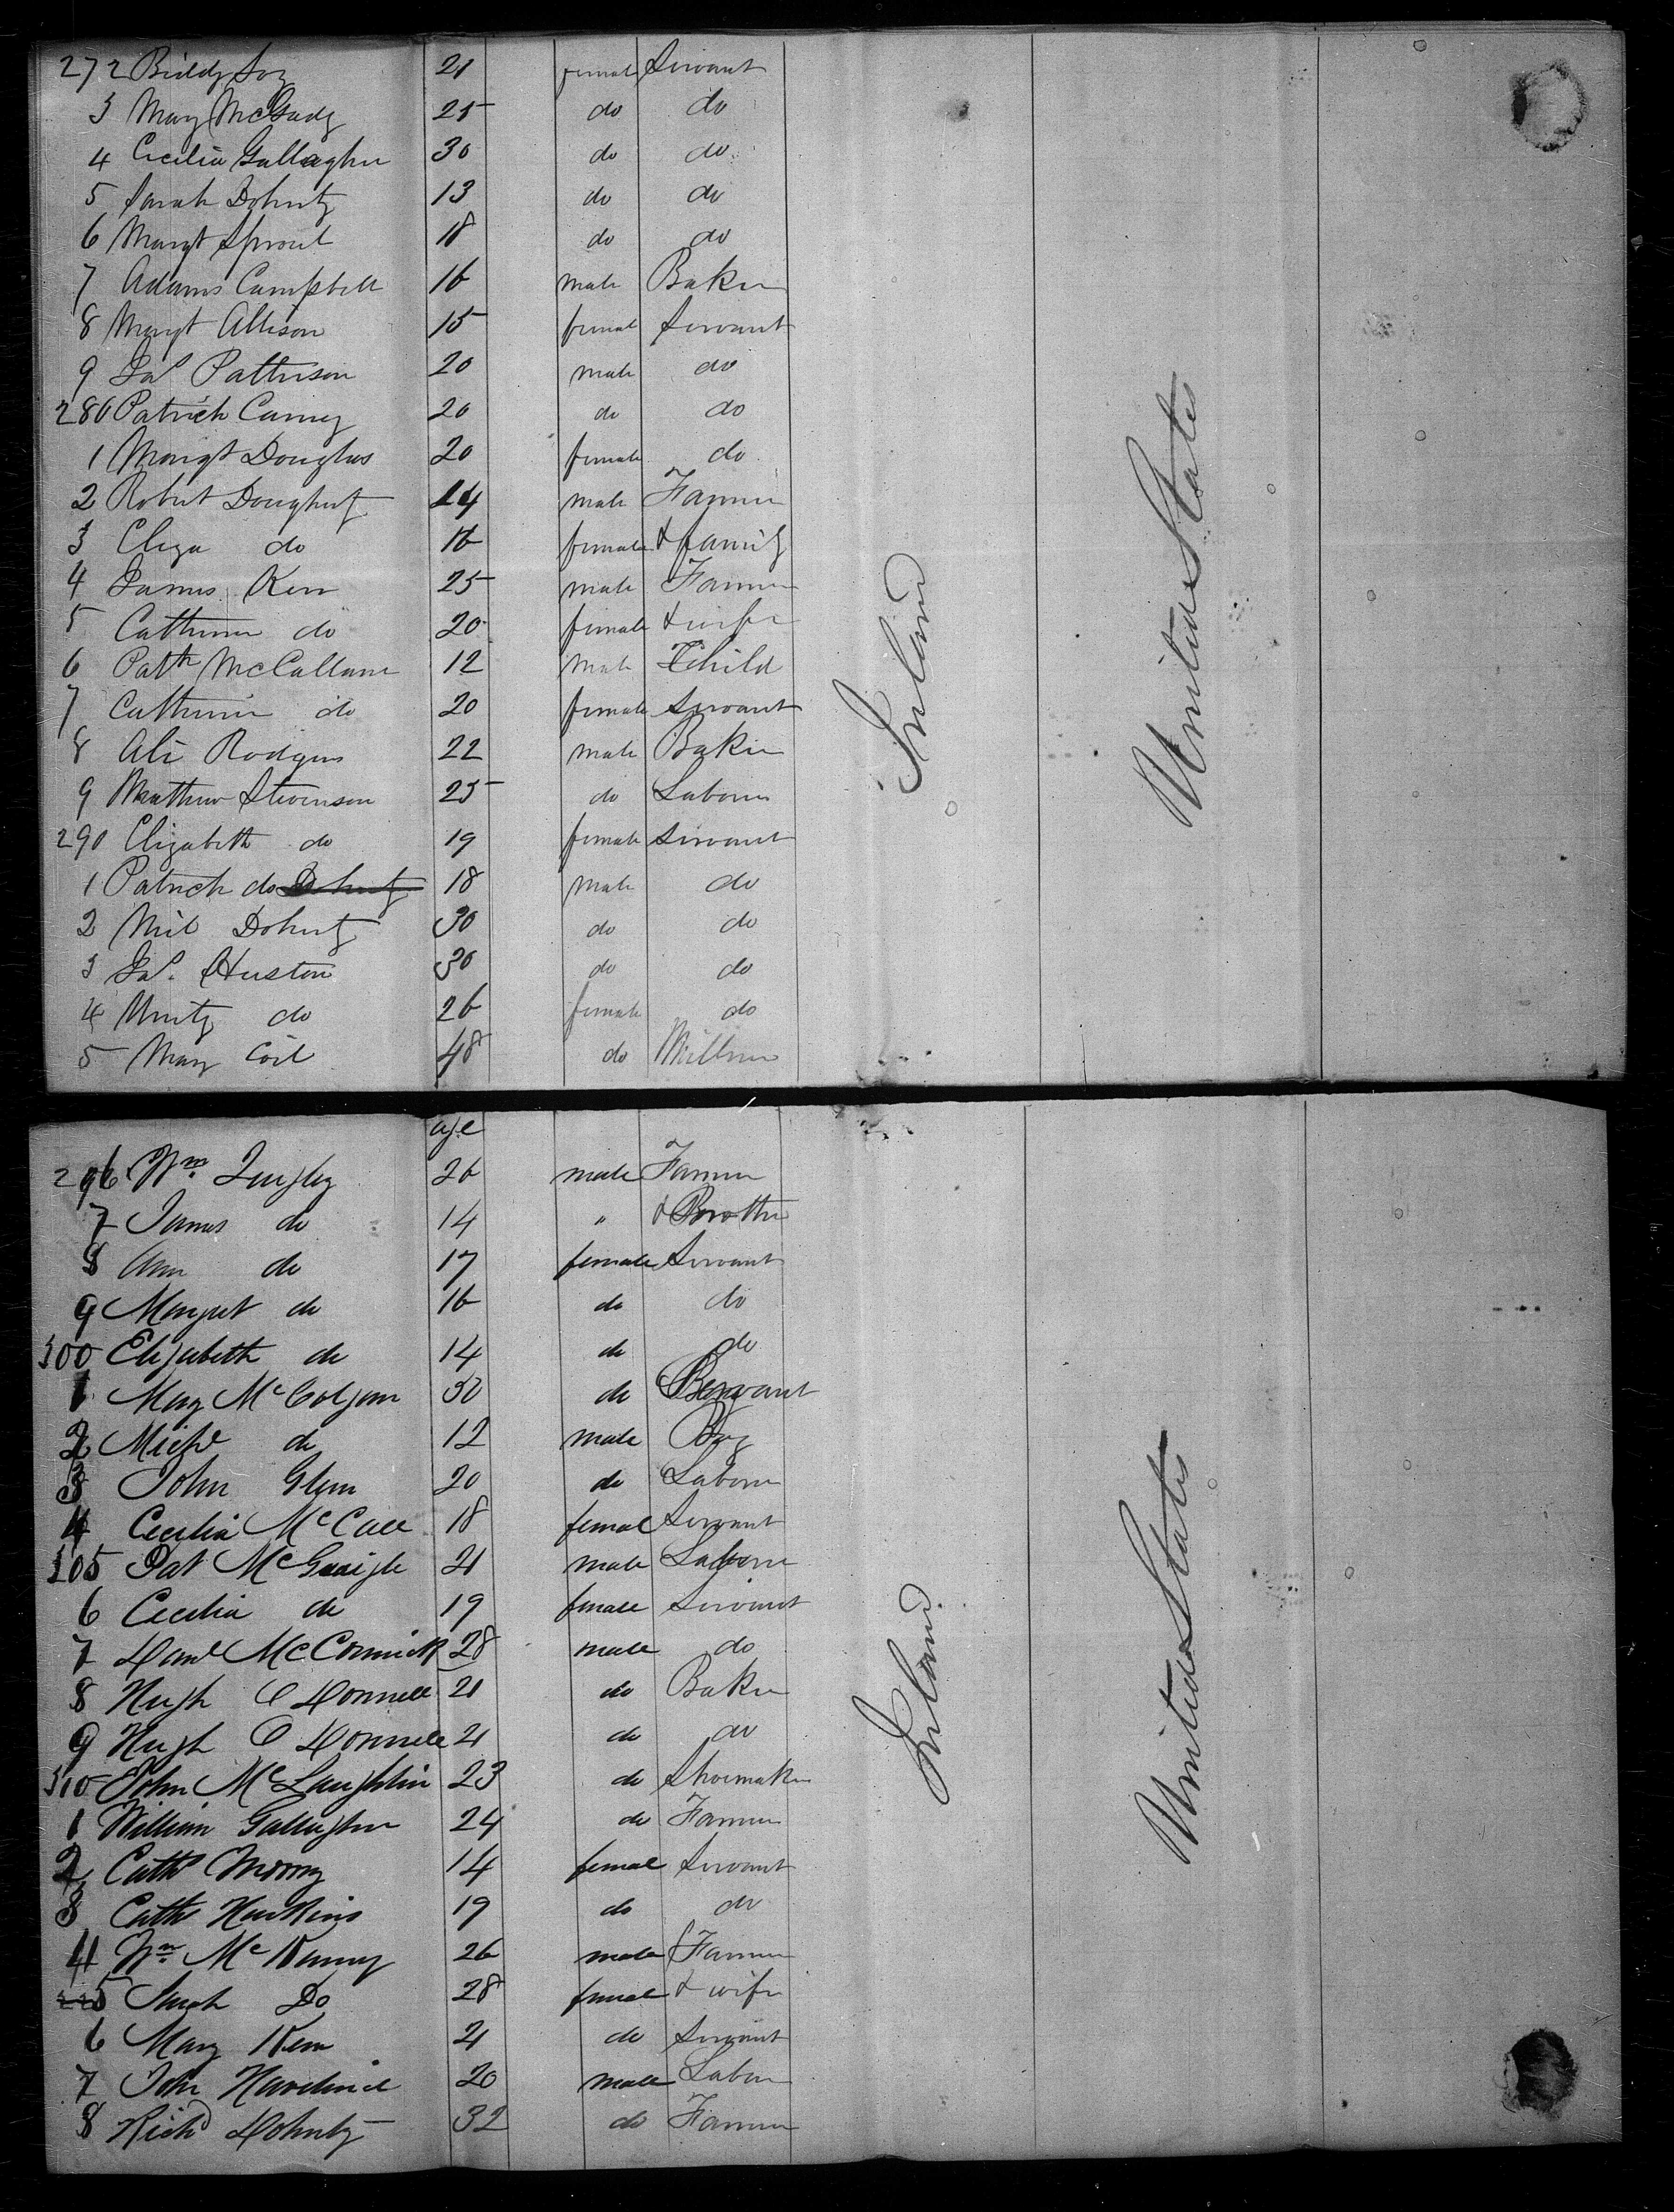 272 Biddy Foy 21 female Servant
3 Mary McGady 25 do do
4 Cecilia Gallagher 30 do do
5 Sarah Doherty 13 do do
6 Margt Sproul 18 do do
7 Adams Campbell 16 male Baker
8 Margt Allison 15 female Servant
9 Jas Patterson 20 male do
280 Patrick Carney 20 do do
1 Margt Douglas 20 female do
2 Robert Dougherty 24 male Farmer
3 Eliza do 16 female & family
4 James Kerr 25 male Farmer
5 Catherine do 20 female & wife
6 Patk McCallam 12 male Child
7 Catherine do 20 female Servant
8 Ali Rodgers 22 male Baker
9 Mathew Stevenson 25 do Laborer
290 Elizabeth do 19 female Servant
1 Patrick do Doherty 18 male do
2 Neil Doherty 30 do do
3 Jas. Huston 30 do do
4 do 26 female do
5 Mary Coil 48 do Milliner
Ireland
United States
age
296 Wm 26 male Farmer
7 James do 14 " & Brother
8 Ann do 17 female Servant
9 Margret do 16 do do
300 Elizabeth do 14 do do
1 Mary McColgan 50 do Servant
2 Michl do 12 male Boy
3 John Glenn 20 do Laborer
4 Cecelia McCall 18 female Servant
305 Pat McGuigle 21 male Laborer
6 Cecelia do 19 female Servant
7 Danl McCormick 28 male do
8 Hugh O Donnell 21 do Baker
9 Hugh O Donnell 21 do do
310 John McLaughlin 23 do Shoemaker
1 William Gallagher 24 do Farmer
2 Cath 14 female Servant
3 Cath Hawkins 19 do do
4 Wm Mc Kenny 26 male Farmer
5 Sarah Do 28 female & wife
6 Mary Kerr 21 do Servant
7 John 20 male Labor
8 Richd Doherty 32 do Farmer
Ireland
United States